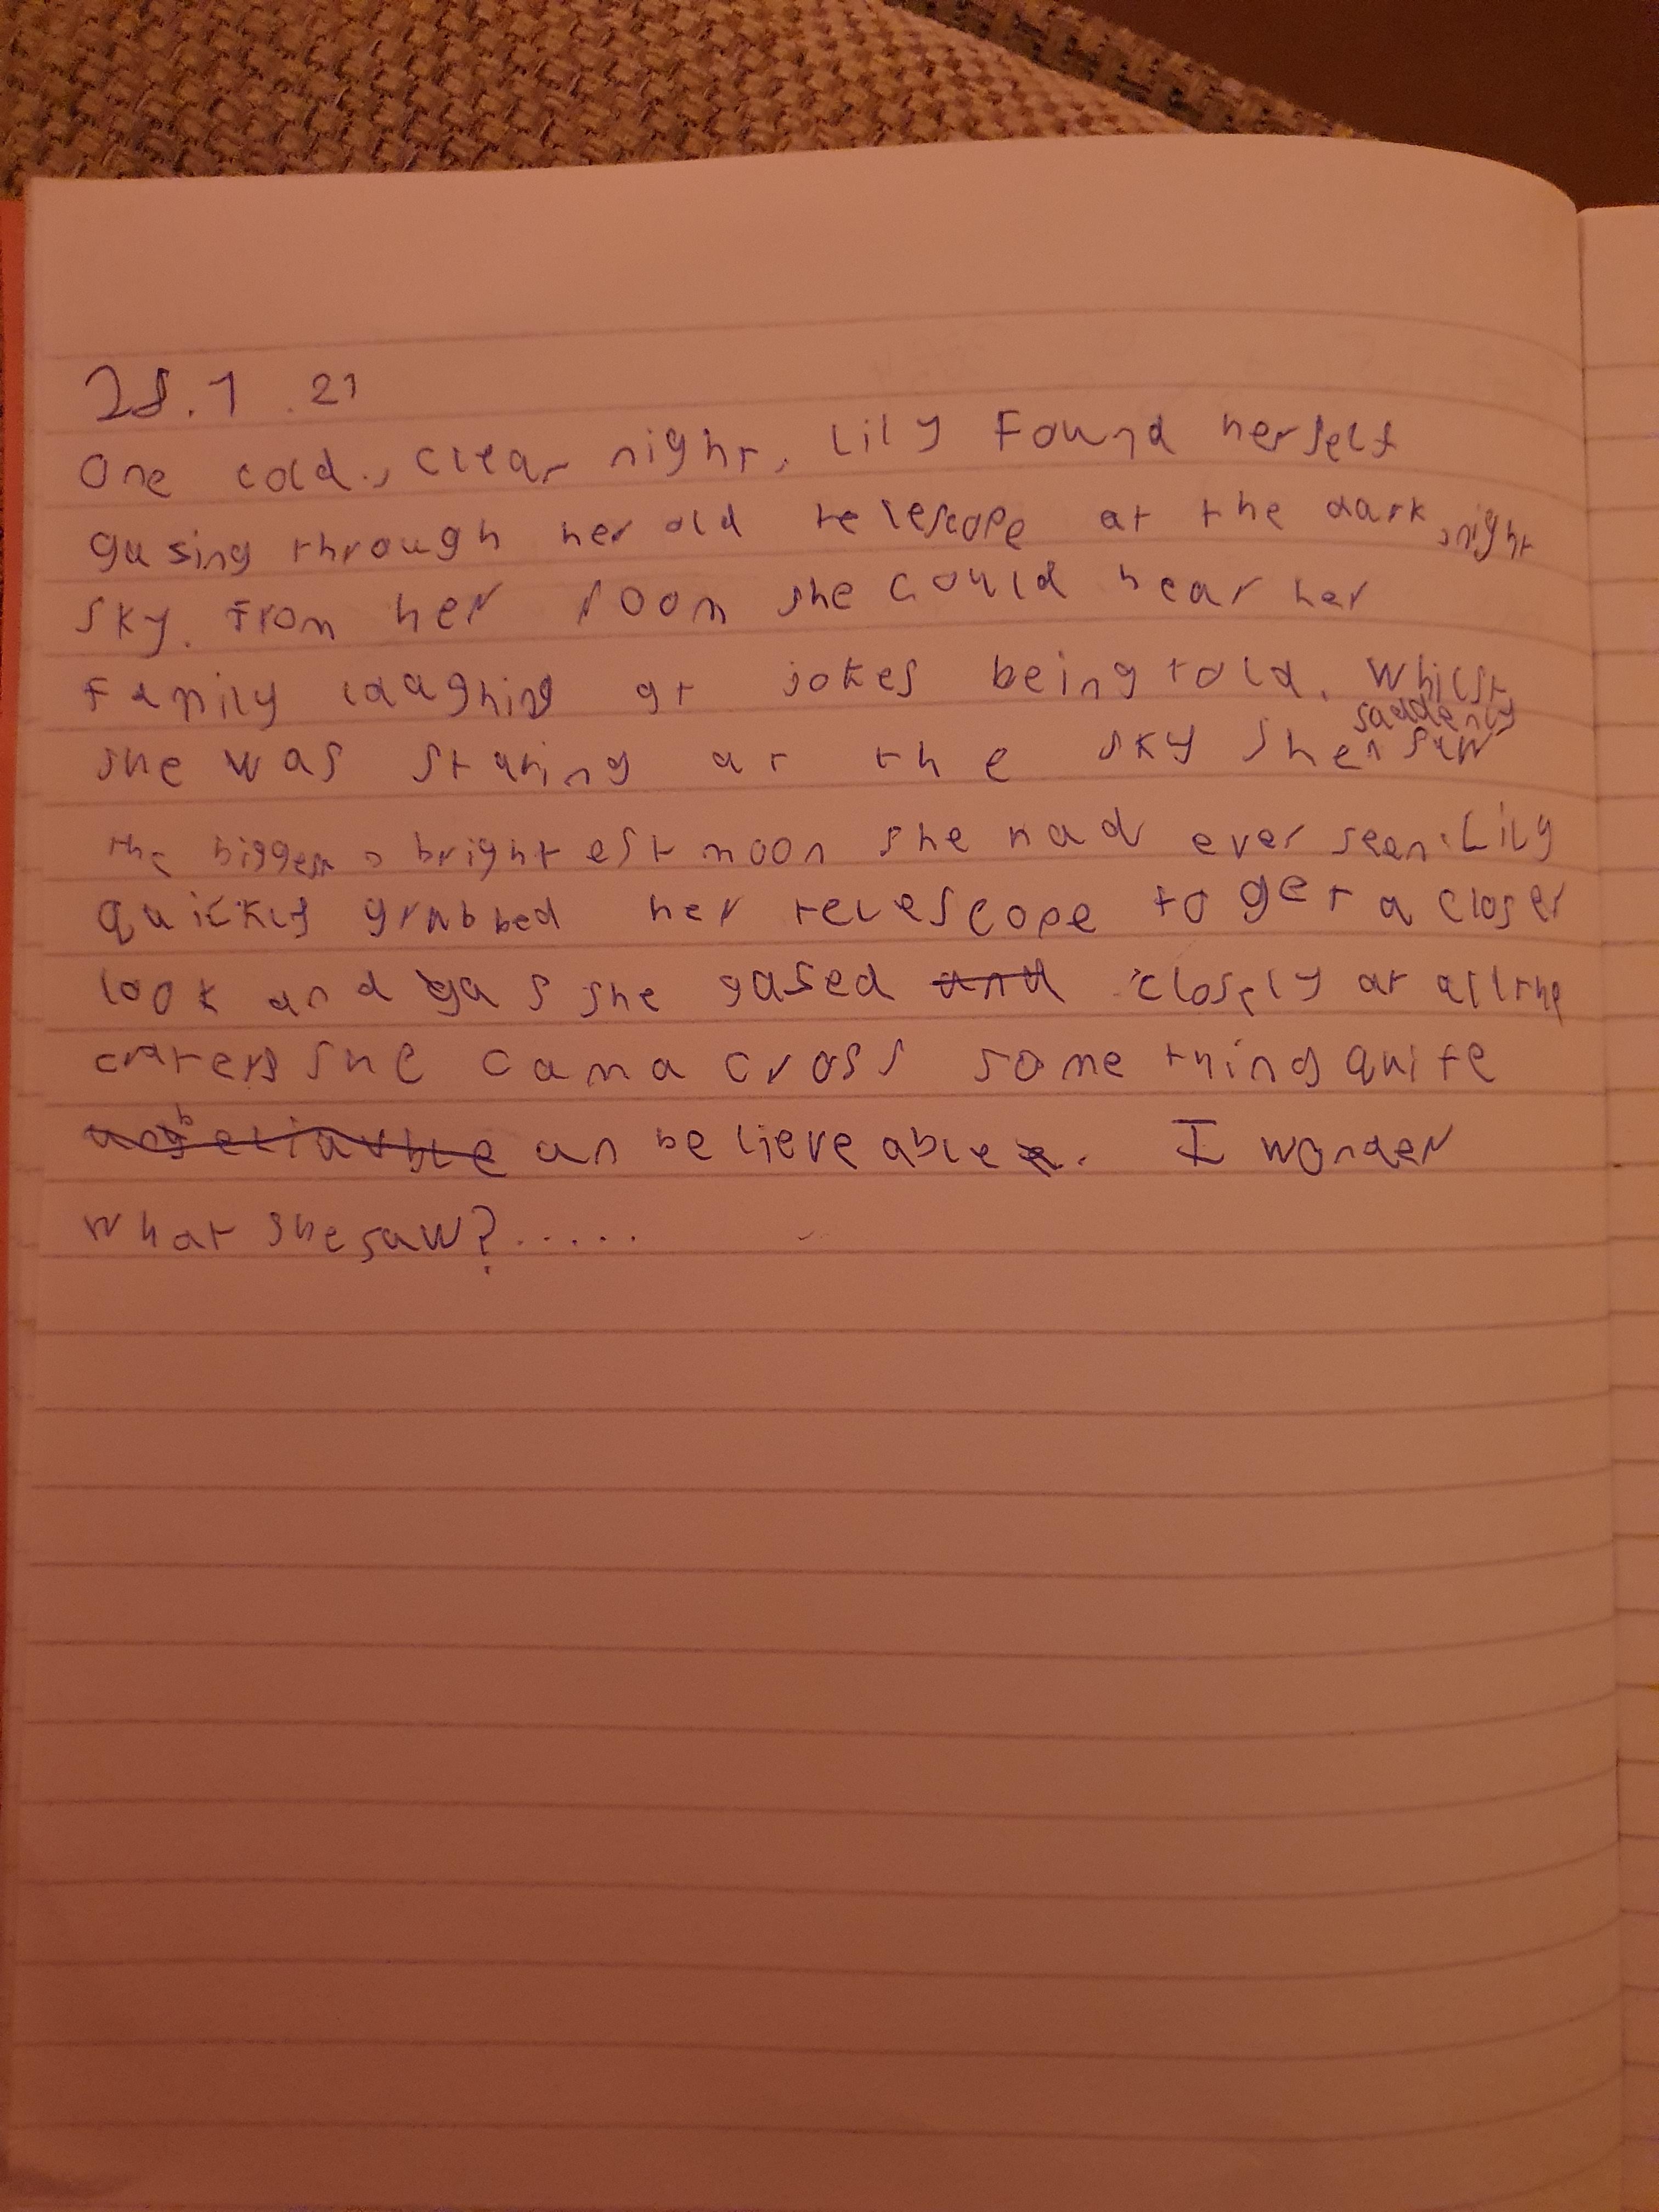 28.1.21
One cold, clear night, Lily Found herself
gasing through her old telescope at the dark, night
sky. From her room she could hear her
Family laughing at jokes being told. Whilst
she was staring at the sky she suddenly saw
the biggest, brightest moon she had ever seen. Lily
quickly grabbed her telescope to get a closer
look and as she gased and closely at all the
craters she came across something quite
unbelieveable. I wonder
what she saw?.....